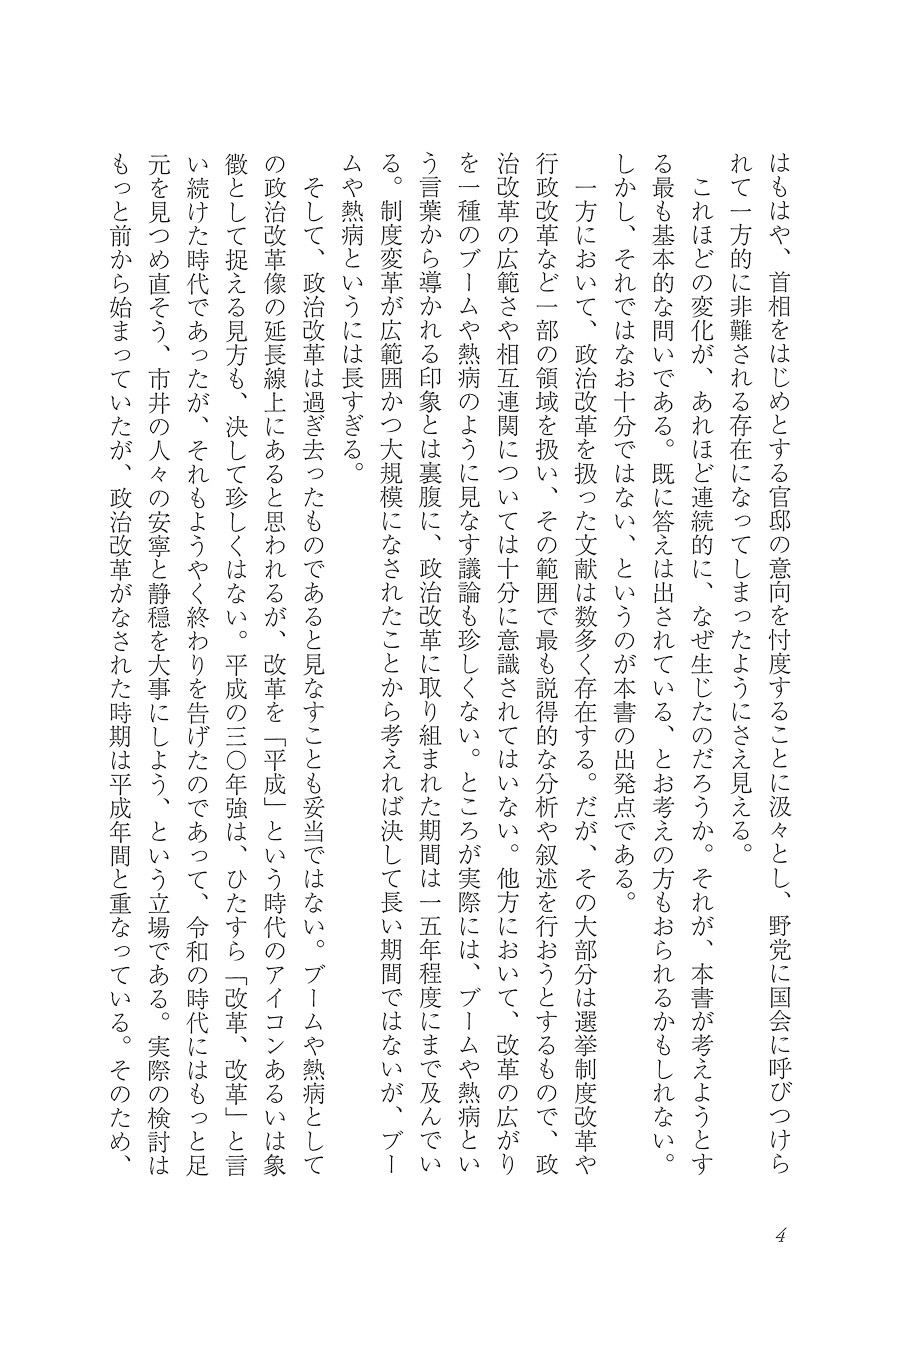 はもはや、首相をはじめとする官邸の意向を忖度することに汲々とし、野党に国会に呼びつけら
れて一方的に非難される存在になってしまったようにさえ見える。
これほどの変化が、あれほど連続的に、なぜ生じたのだろうか。それが、本書が考えようとす
る最も基本的な問いである。既に答えは出されている、とお考えの方もおられるかもしれない。
しかし、それではなお十分ではない、というのが本書の出発点である。
一方において、政治改革を扱った文献は数多く存在する。だが、その大部分は選挙制度改革や
行政改革など一部の領域を扱い、その範囲で最も説得的な分析や叙述を行おうとするもので、政
治改革の広範さや相互連関については十分に意識されてはいない。他方において、改革の広がり
を一種のブームや熱病のように見なす議論も珍しくない。ところが実際には、ブームや熱病とい
う言葉から導かれる印象とは裏腹に、政治改革に取り組まれた期間は一五年程度にまで及んでい
る。制度変革が広範囲かつ大規模になされたことから考えれば決して長い期間ではないが、ブー
ムや熱病というには長すぎる。
そして、政治改革は過ぎ去ったものであると見なすことも妥当ではない。ブームや熱病として
の政治改革像の延長線上にあると思われるが、改革を「平成」という時代のアイコンあるいは象
徴として捉える見方も、決して珍しくはない。平成の三〇年強は、ひたすら「改革、改革」と言
い続けた時代であったが、それもようやく終わりを告げたのであって、令和の時代にはもっと足
元を見つめ直そう、市井の人々の安寧と静穏を大事にしよう、という立場である。実際の検討は
もっと前から始まっていたが、政治改革がなされた時期は平成年間と重なっている。そのため、
4